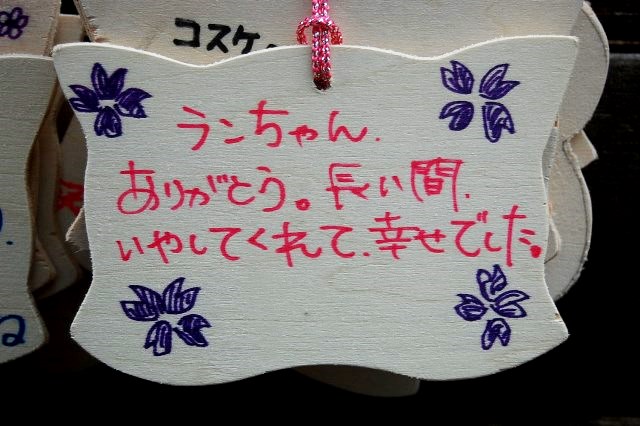 コスケ
ランちゃん.
ありがとう。長い間.
いやしてくれて.幸せでした。